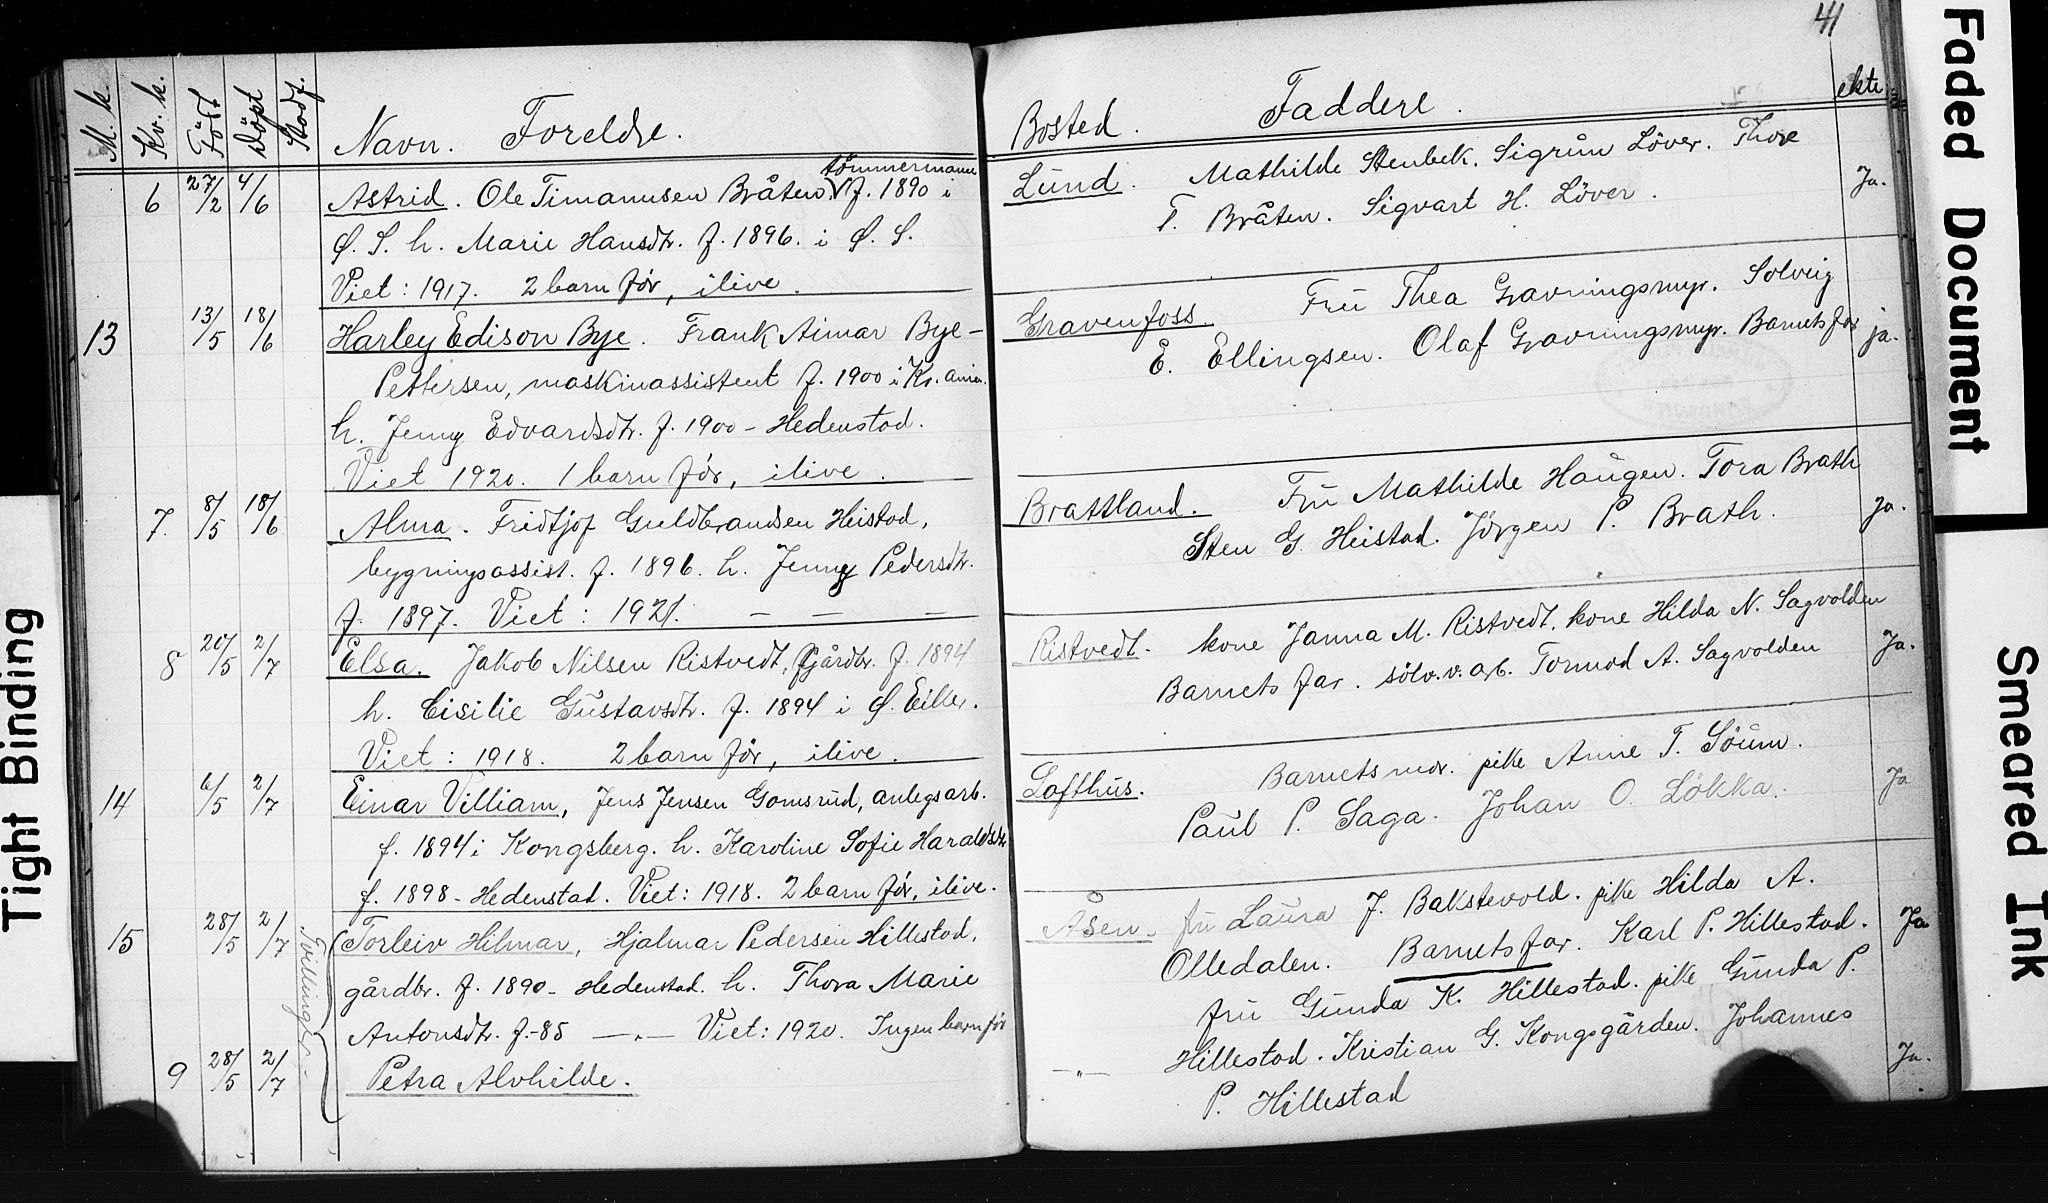 41
M. k. Kv. k. Föd Döpt Stodf. Navn. Foreldre.
6 27/2 4/6 Astrid. Ole Timanusen Bråten, tömmermann f. 1890 i
Ø. S. h. Marie Hansdtr. f. 1896. i Ø. S.
Viet: 1917. 2 barn før, ilive.
13 13/5 18/6 Harley Edison Bye. Frank Aimar Bye-
Pettersen, maskinassistent f. 1900 i Kr.ania.
h. Jenny Edvardsdtr. f. 1900 - Hedenstad.
Viet 1920. 1 barn før, ilive.
7. 8/5 18/6 Alma. Fridtjof Guldbrandsen Heistad,
bygningsassist. f. 1896. h. Jenny Pedersdtr.
f. 1897. Viet: 1921. — — —
8 20/5 2/7 Elsa. Jakob Nilsen Ristvedt, gårdbr. f. 1894
h. Cisilie Gustavsdtr. f. 1894 i Ø. Eiker.
Viet: 1918. 2 barn før, ilive.
14 6/5 2/7 Einar Villiam, Jens Jensen Gomsrud, anlegsarb.
f. 1894 i Kongsberg. h. Karoline Sofie Haraldsdtr
f. 1898 - Hedenstad. Viet: 1918. 2 barn før, ilive.
15 28/5 2/7 Tvillinger. Torleiv Hilmar, Hjalmar Pedersen Hillestad,
gårdbr. f. 1890 - Hedenstad. h. Thora Marie
Antonsdtr. f. -85 —"— Viet: 1920. Ingen barn før
9 28/5 2/7 Petra Alvhilde.
Bosted. Faddere. ekte
Lund. Mathilde Stenbek. Sigrun Löver. Thore
T. Bråten. Sigvart H. Löver. Ja.
Gravenfoss. Fru Thea Gravningsmyr. Solveig
E. Ellingsen. Olaf Gravningsmyr. Barnets far ja.
Brattland. Fru Mathilde Haugen. Tora Brath
Sten G. Heistad. Jørgen P. Brath. Ja.
Ristvedt. kone Janna M. Ristvedt, kone Hilda N. Sagvolden
Barnets far. sølv.v.arb. Tormod A. Sagvolden Ja.
Lofthus. Barnets mor. pike Anne T. Söum.
Paul P. Saga. Johan O. Løkka. Ja
Åsen. fru Laura J. Bakstevold. pike Hilda A.
Olledalen. Barnets far. Karl P. Hillestad. Ja
fru Gunda K. Hillestad. pike Gunda P.
—"— Hillestad. Kristian G. Kongsgården. Johannes Ja.
P. Hillestad
Tight Binding
Faded Document
Smeared Ink